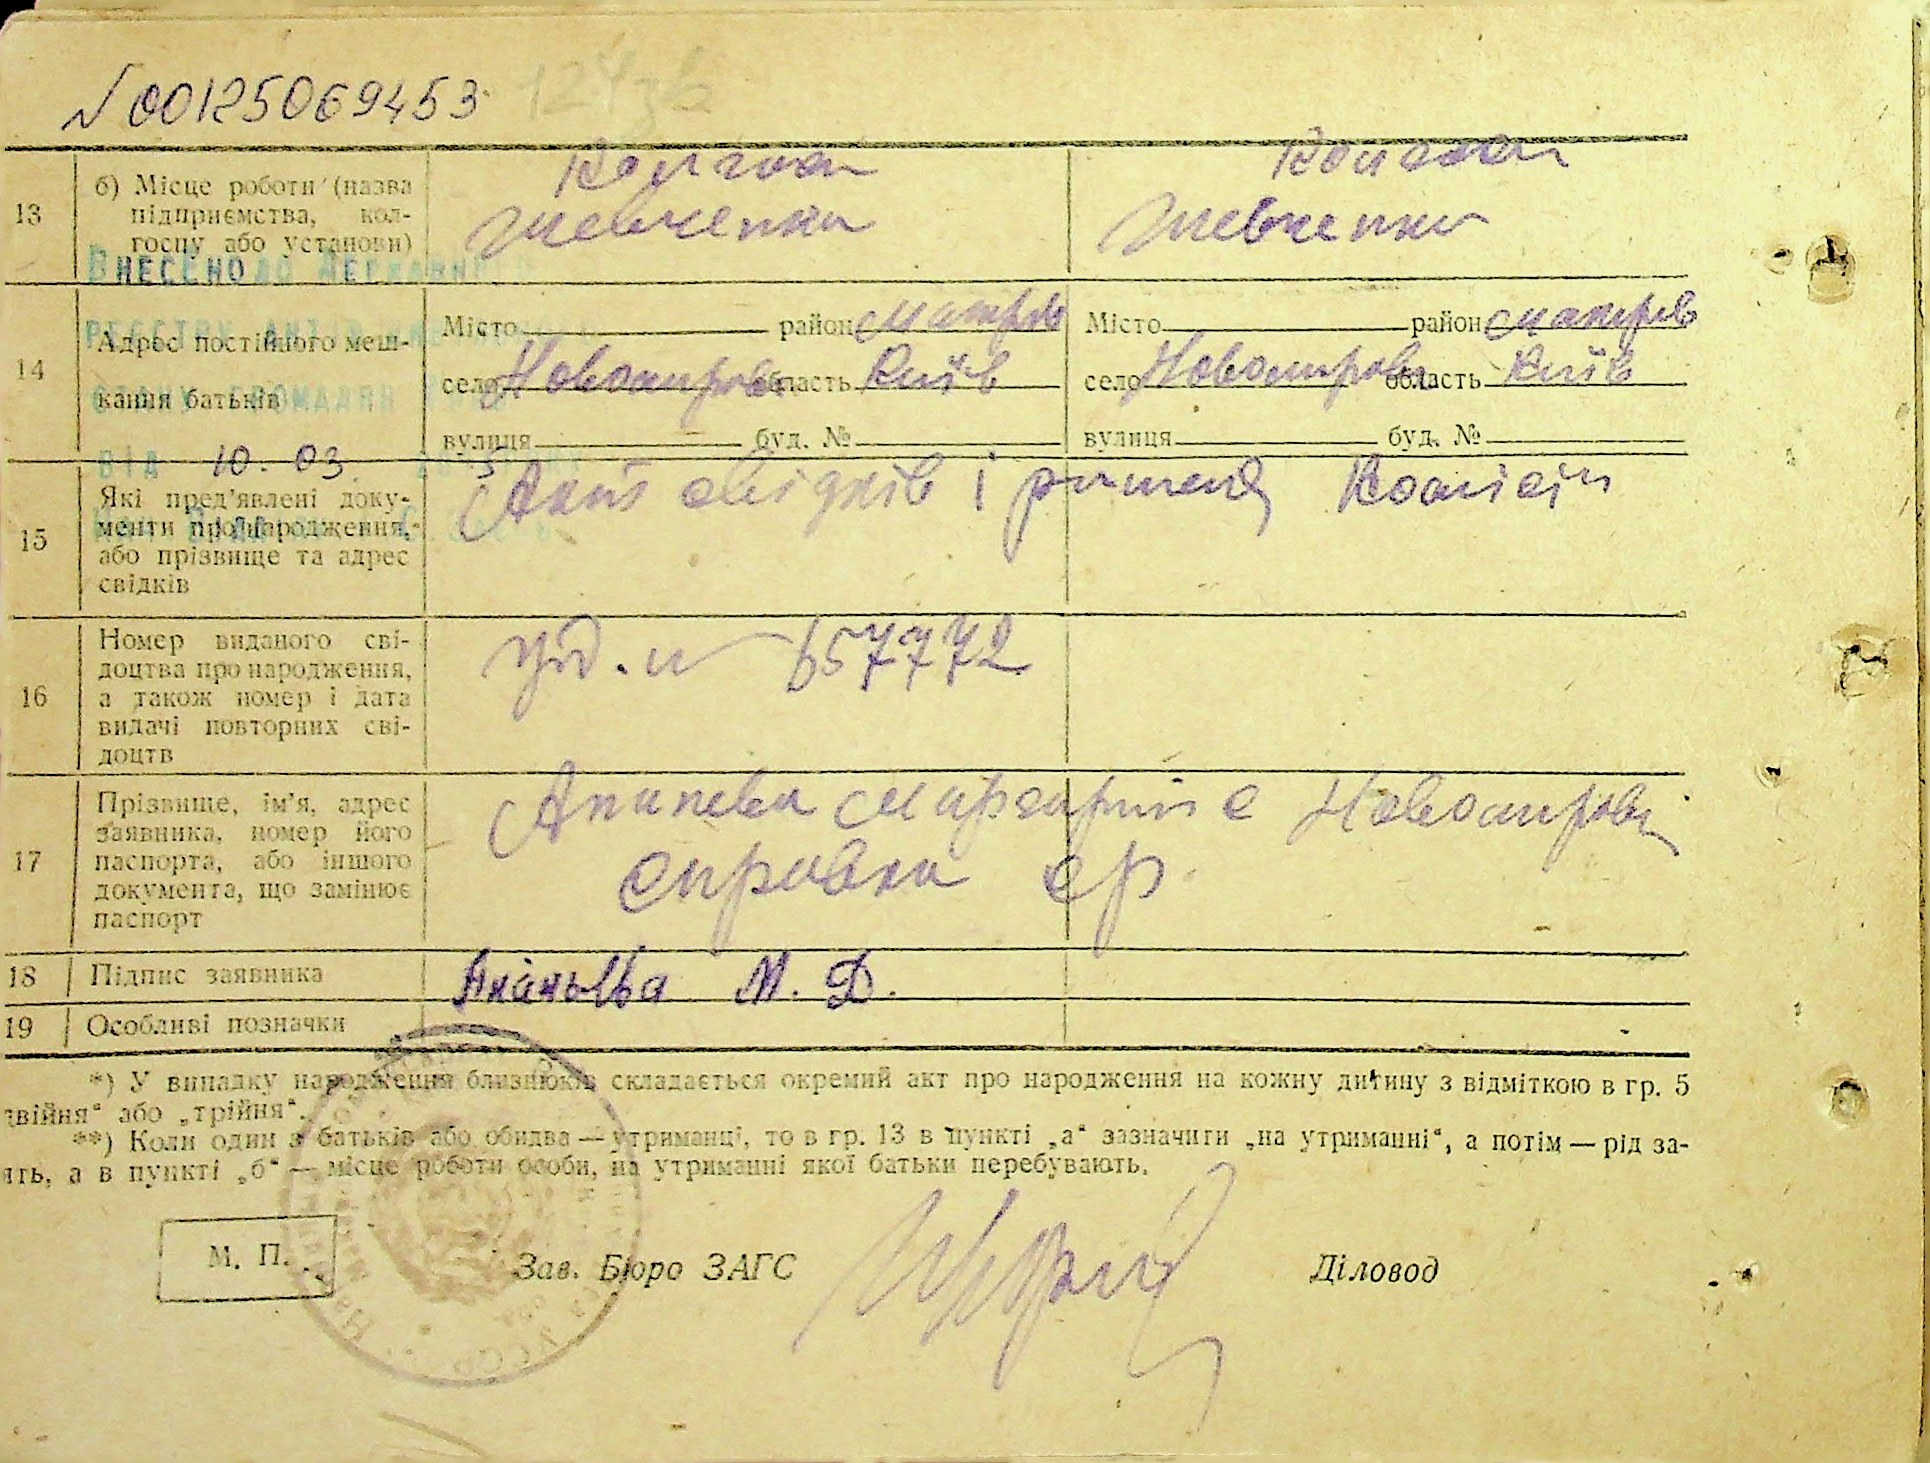 № 00125069453
13
б) Місце роботи (назва
підприємства, кол-
госпу або установи)
Колгосп
Шевченка
Колгосп
Шевченка
Внесено до Державного
реєстру актів
стану громадян
від 10.03
14
Адрес постійного меш-
кання батьків
Місто район Макарів
село область Київ
вулиця буд. №
Місто район Макарів
село область Київ
вулиця буд. №
15
Які пред'явлені доку-
менти про народження,
або прізвище та адрес
свідків
Акт свідків і комісії
16
Номер виданого сві-
доцтва про народження,
а також номер і дата
видачі повторних сві-
доцтв
657772
17
Прізвище, ім'я, адрес
заявника, номер його
паспорта, або іншого
документа, що замінює
паспорт
Маргарита с
справка ср.
18
Підпис заявника
Ананьєва М. Д.
19
Особливі позначки
*) У випадку народження близнюків складається окремий акт про народження на кожну дитину з відміткою в гр. 5
двійня" або „трійня".
**) Коли один з батьків або обидва — утриманці, то в гр. 13 в пункті „а" зазначити „на утриманні", а потім — рід за-
ять, а в пункті „б" — місце роботи особи, на утриманні якої батьки перебувають.
М. П.
Зав. Бюро ЗАГС
Діловод